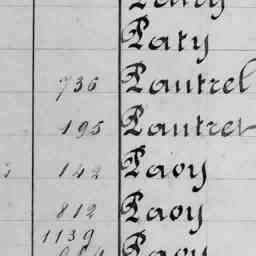 Paty
736 Pautrel
195 Pautret
142 Pavy
812 Pavy
1139
Pavy